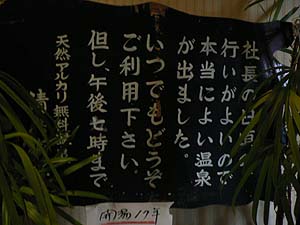 社長の日頃の
行いがよいので
本当によい温泉
が出ました。
いつでもどうぞ
ご利用下さい。
但し、午後七時まで
天然アルカリ無料
開湯17年